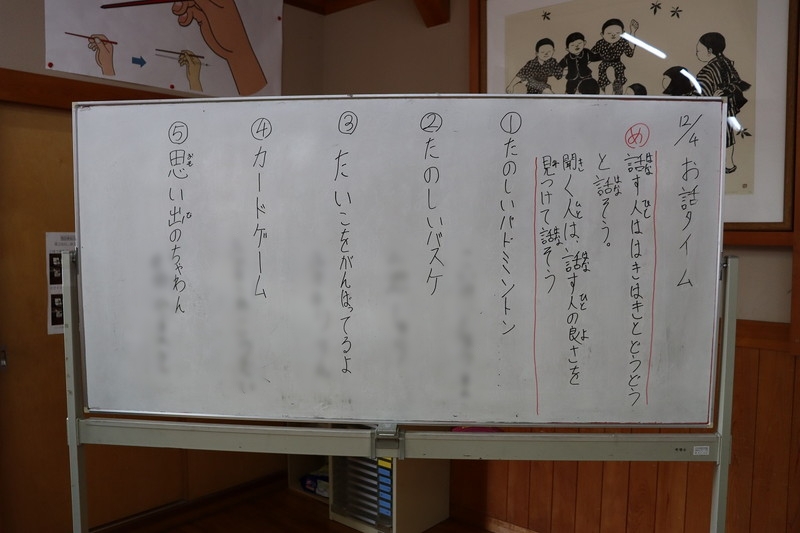 12/4 お話タイム
め 話す人ははきはきとどうどう
と話そう。
聞く人は、話す人の良さを
見つけて話そう
① たのしいバドミントン
② たのしいバスケ
③ たいこをがんばってるよ
④ カードゲーム
⑤ 思い出のちゃわん